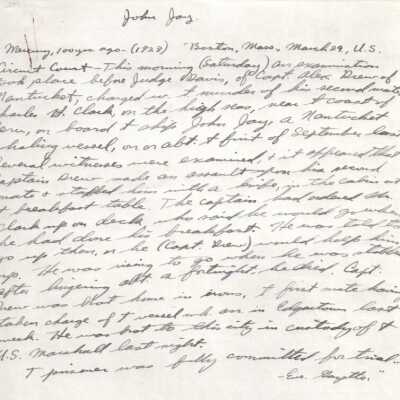 John Jay.
Mercury, 100 yrs ago - (1828) "Boston, Mass., March 29, U.S.
Circuit Court - This morning (Saturday) an examination
took place before Judge Davis, of Capt. Alex. Drew of
Nantucket, charged w t murder of his second mate,
Charles H. Clark, on the high seas, near t coast of
on board t ship John Jay, a Nantucket
whaling vessel, on or abt. t first of September last.
Several witnesses were examined, & it appeared that
Captain Drew made an assault upon his second
mate & stabbed him with a knife, in the cabin at
t breakfast table. The captain had ordered
Clark up on deck, who said he would go when
he had done his breakfast. He was told to
go up then, or he (Capt. Drew) would help him
up. He was rising to go when he was stabbed
After lingering abt. a fortnight, he died. Capt.
Drew was brot home in irons, t first mate having
taken charge of t vessel wh. arr. in Edgartown last
week. He was brot to this city in custody of t
U.S. Marshall last night.
T prisoner was fully committed for trial."
- Eve. Gazette."